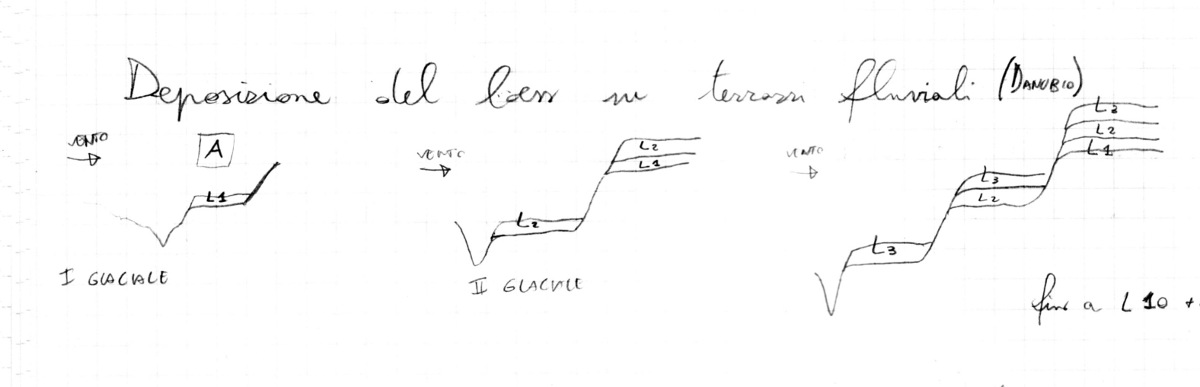 Deposizione del loess su terrazzi fluviali (DANUBIO)
VENTO
A
L1
I GLACIALE
VENTO
L2
L1
L2
II GLACIALE
VENTO
L3
L2
L1
L3
L2
L3
fino a L10 +